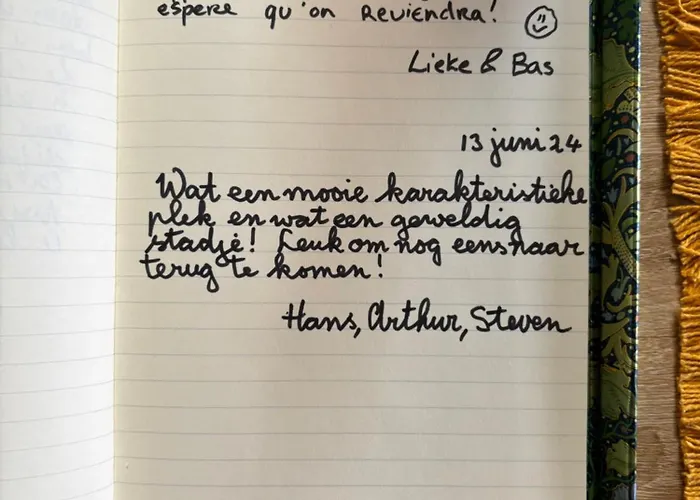 espere qu'on Reviendra!
Lieke & Bas
13 juni 24
Wat een mooie karakteristieke
plek en wat een geweldig
stadje! Leuk om nog eens naar
terug te komen!
Hans, Arthur, Steven